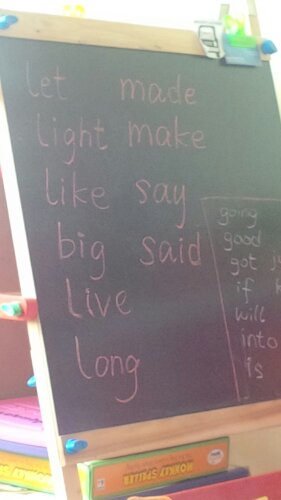 let made
light make
like say
big said
live
long
going
good
got
if
will
into
is
MONKEY SPELLER